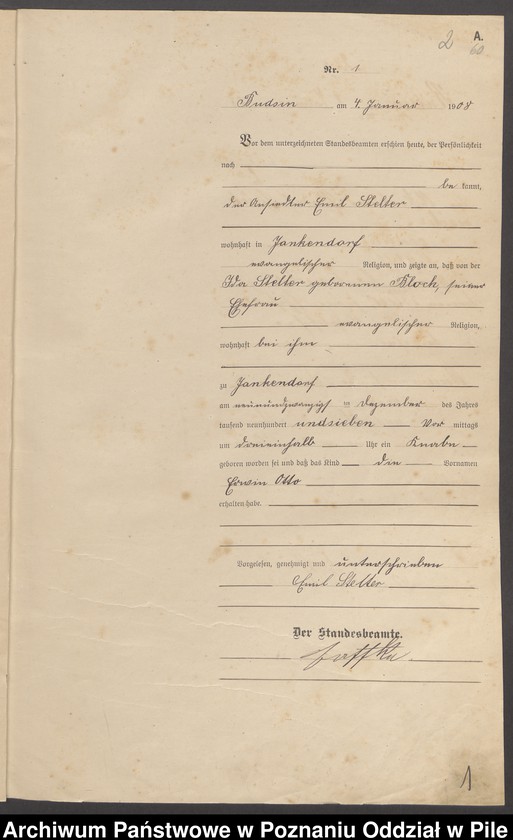 2 A.
60
Nr. 1
Budsin am 4. Januar 1908
Vor dem unterzeichneten Standesbeamten erschien heute, der Persönlichkeit
nach
be kannt,
der Ansiedler Emil Stelter
wohnhaft in Jankendorf
evangelischer Religion, und zeigte an, daß von der
Ida Stelter geborenen Block, seiner
Ehefrau
evangelischer Religion,
wohnhaft bei ihm
zu Jankendorf
am neunundzwanzigsten Dezember des Jahres
tausend neunhundert undsieben Vor mittags
um dreieinhalb Uhr ein Knabe
geboren worden sei und daß das Kind die Vornamen
Erwin Otto
erhalten habe.
Vorgelesen, genehmigt und unterschrieben
Emil Stelter
Der Standesbeamte.
1
Archiwum Państwowe w Poznaniu Oddział w Pile